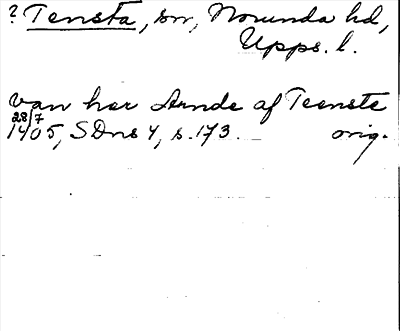 ? Tensta, sn, Norunda hd,
Upps. l.
van her Arnde af Teenste
28/7
1405, SDns 4, s. 173. orig.